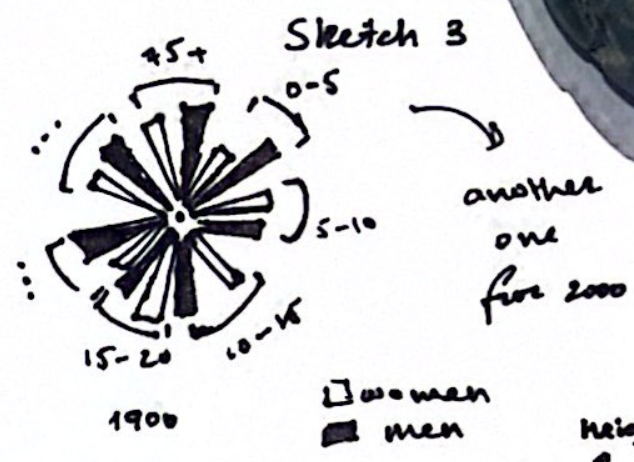 Sketch 3
0-5
5-10
10-15
15-20
...
...
1900
another
one
for 2000
women
men